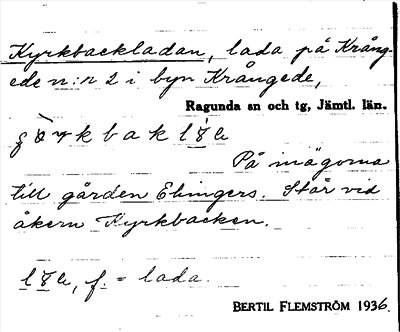 Kyrkbackladan, lada på Krång-
ede n:r 2 i byn Krångede,
Ragunda sn och tg, Jämtl. län.
På inägorna
till gården Elingers. Står vid
åkern Kyrkbacken.
f. = lada.
BERTIL FLEMSTRÖM 1936.